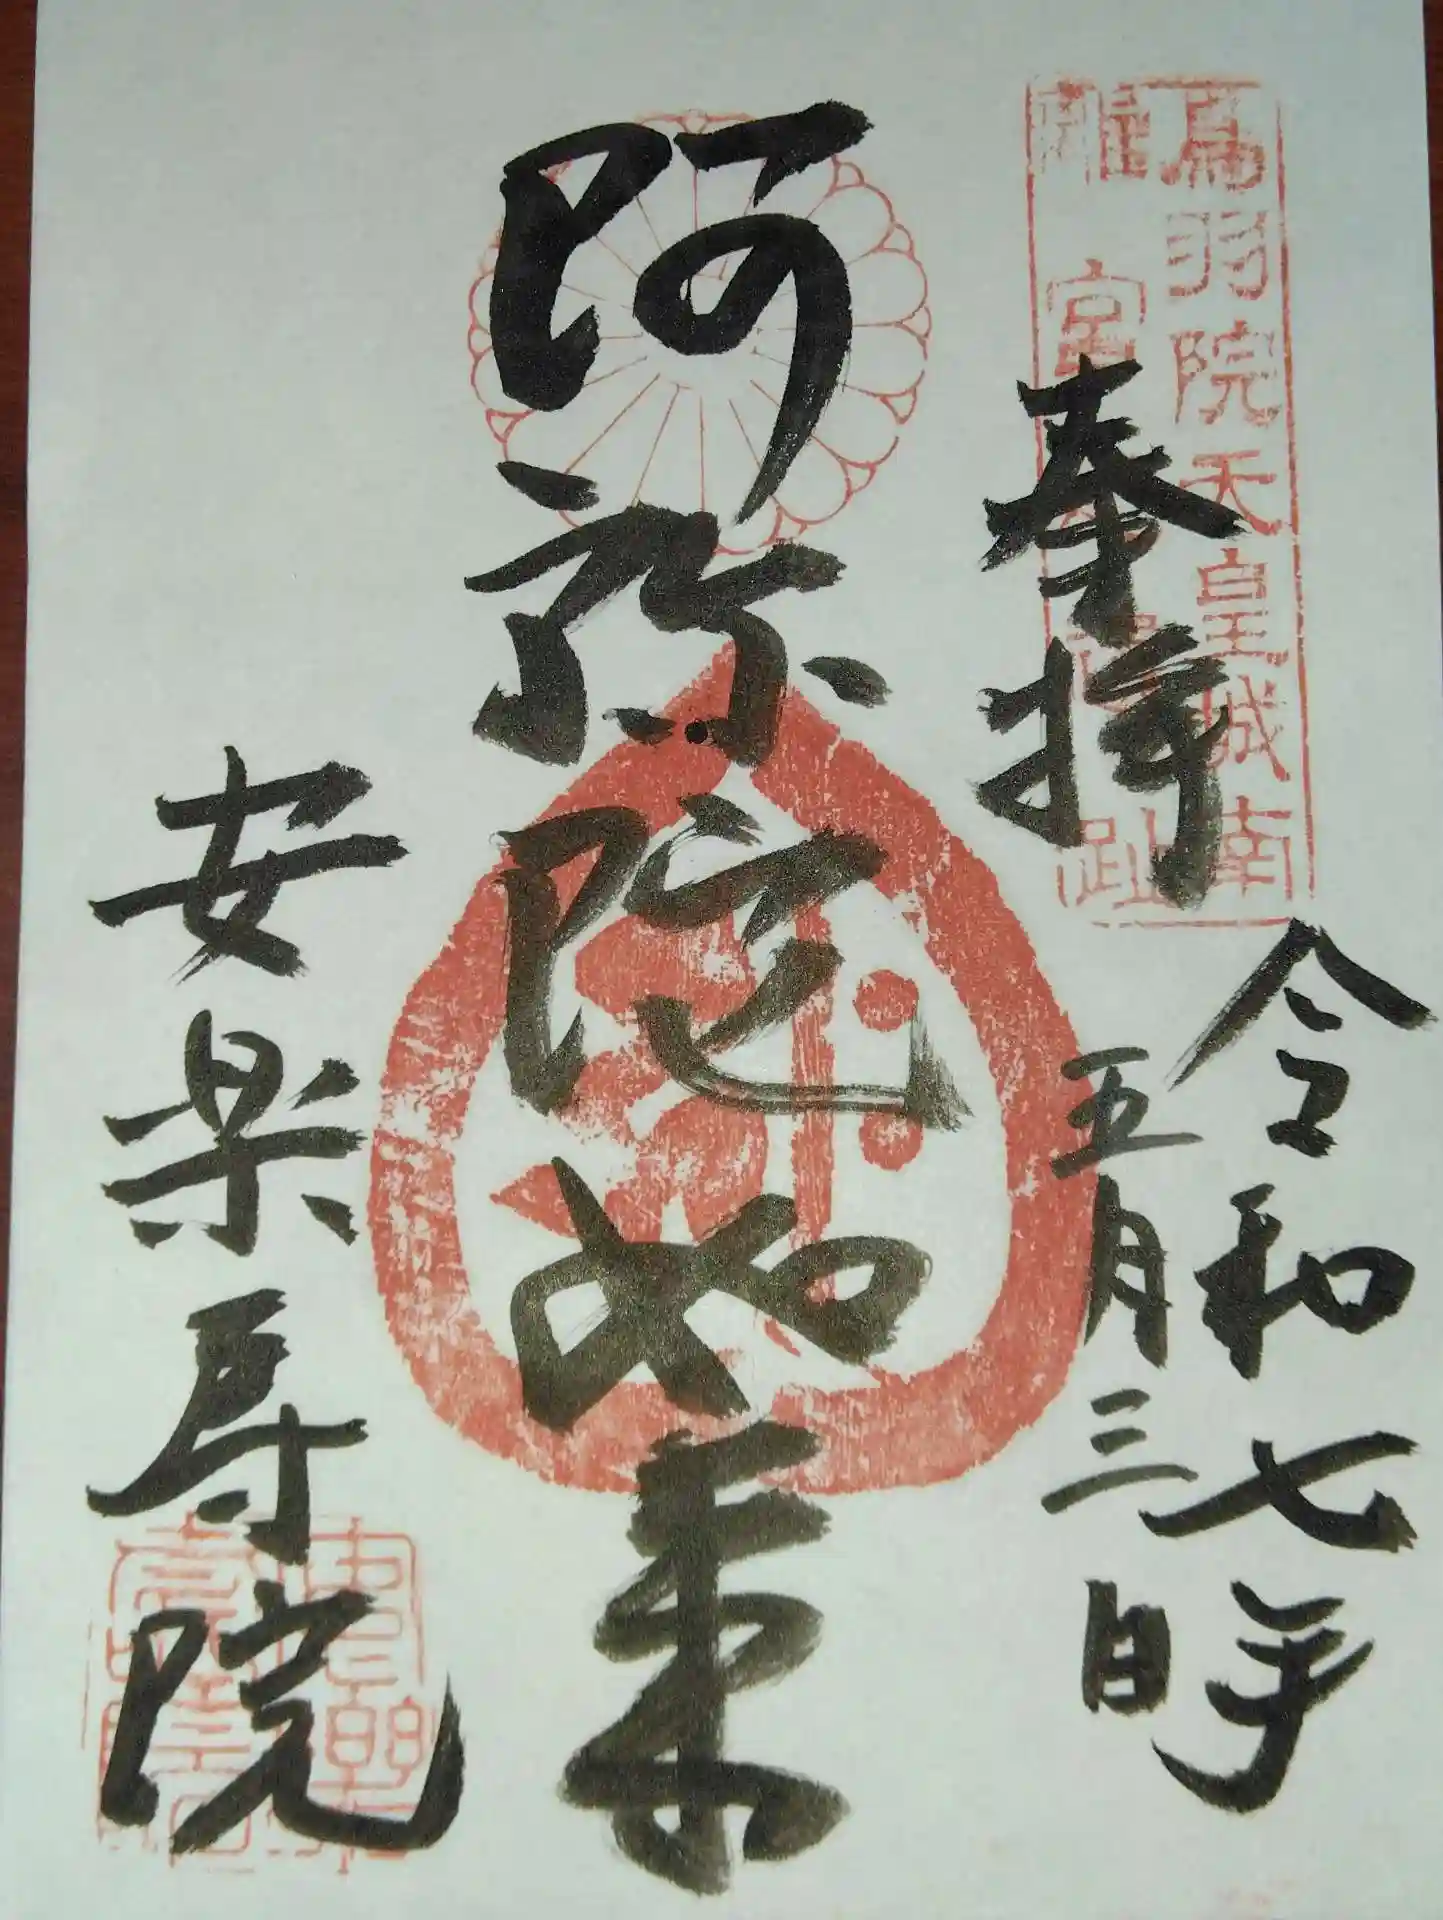 鳥羽院天皇城南
離宮
趾
奉拝
令和七年
五月三日
阿弥陀如来
安楽寿院